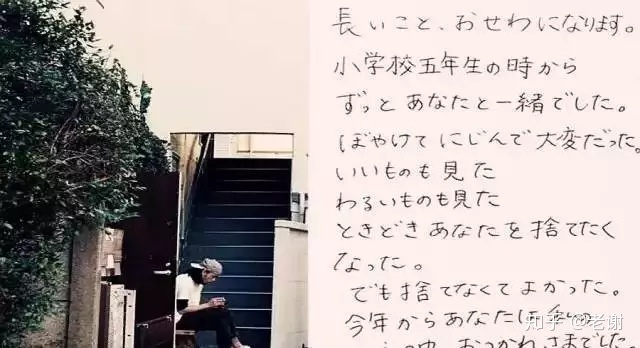 長いこと、おせわになります。
小学校五年生の時から
ずっとあなたと一緒でした。
ぼやけてにじんで大変だった。
いいものも見た
わるいものも見た
ときどきあなたを捨てたく
なった。
でも捨てなくてよかった。
今年からあなたは
おつかれさまでした
知乎 @老谢